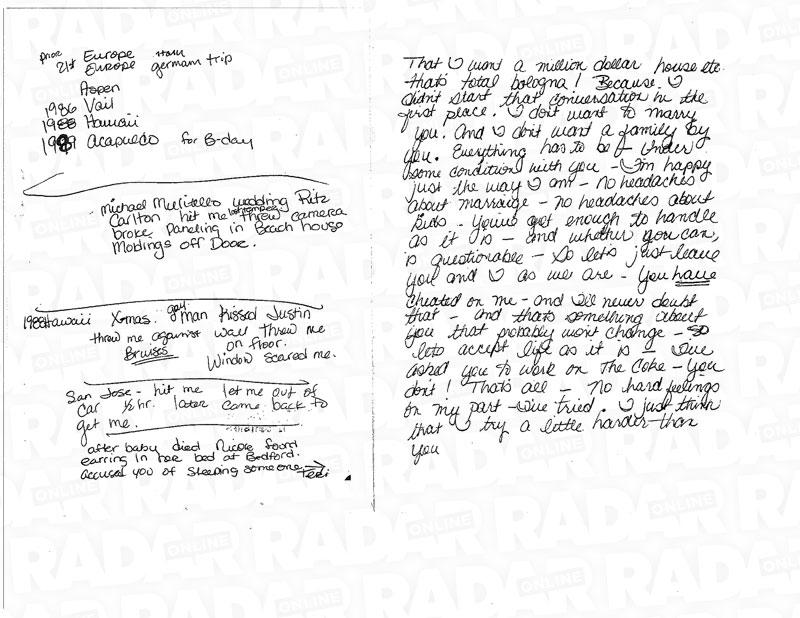 prior
21st Europe
Europe german trip
Aspen
1986 Vail
1988 Hawaii
1989 Acapulco for B-day
Michael wedding Ritz
Carlton hit me threw camera
broke Paneling in Beach house
Moldings off Door.
1988 Hawaii Xmas. gay man Kissed Justin
threw me against wall threw me
on floor.
Bruises
Window scared me.
San Jose - hit me let me out of
car ½ hr. later came back to
get me.
after baby died Nicole found
earring in her bed at Bedford.
accused you of sleeping someone
Teri
That I want a million dollar house etc.
thats total bologna! Because. I
didn't start that conversation in the
first place. I don't want to marry
you. And I don't want a family by
you. Everything has to be - Under
some condition with you - I'm happy
just the way I am - no headaches
about marriage - no headaches about
kids - You've got enough to handle
as it is - and whether you can,
is questionable - So let's just leave
you and I as we are - You have
cheated on me - and I'll never doubt
that - and thats something about
you that probably won't change - so
lets accept life as it is - I've
asked you to work on The Coke - you
don't! That's all - No hard feelings
on my part - I've tried. I just think
that I try a little harder than
you
RADAR ONLINE